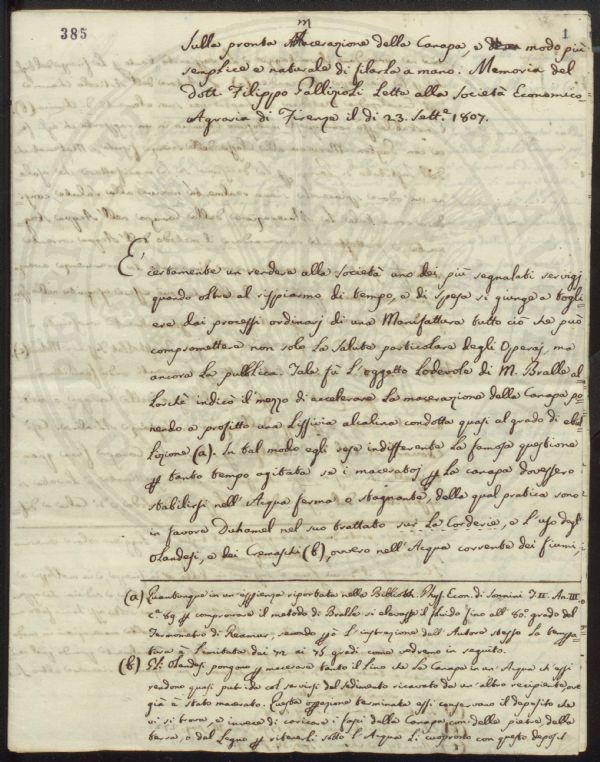 385
1
Sulla pronta Macerazione della Canapa, e modo più
semplice e naturale di filarla a mano. Memoria del
Dott. Filippo Gallizioli Letta alla Società Economico
Agraria di Firenze il di 23. Sett.e 1807.
E'
certamente un rendere alla Società uno dei più segnalati servigj
quando oltre al risparmio di tempo, e di spesa si giunge a togli
ere dai processi ordinarj di una Manifattura tutto ciò che può
compromettere non solo la salute particolare degli Operaj ma
ancora la pubblica. Tale fù l'oggetto lodevole di M. Bralle al
lorchè indicò il mezzo di accelerare la macerazione della Canapa po
nendo a profitto una Lissivia alcalina condotta quasi al grado di ebul
lizione (a). In tal modo egli rese indifferente la famosa questione
tanto tempo agitata se i maceratoj la canapa dovessero
stabilirsi nell'Acqua ferma e stagnante, della qual pratica sono
in favore Duhamel nel suo trattato sur la Corderie, e l'uso degli
Olandesi, e dei Cremaschi (b), ovvero nell'Acqua corrente dei fiumi,
(a) Quantunque in un' riportata nella Biblioth. Phys. Econ. di Sonnini T. II. An. III
c.e 89 comprovare il metodo di Bralle si elevasse il fluido fino all' 80° grado del
Termometro di Reaumur, secondo l'istruzione dell'Autore stesso la
è limitata dai 72 ai 75 gradi come vedremo in seguito.
(b) Gli Olandesi pongono macerare tanto il Lino che la Canapa in un' Acqua ch'essi
rendono quasi putrida col servirsi del sedimento ricavato da un'altro recipiente, ove
già è stato macerato. Questa terminata essi conservano il deposito che
vi si trova, e invece di caricare i della Canapa con delle pietre, della
terra, o del Legno ritenerli sotto l'Acqua li cuoprono con questo